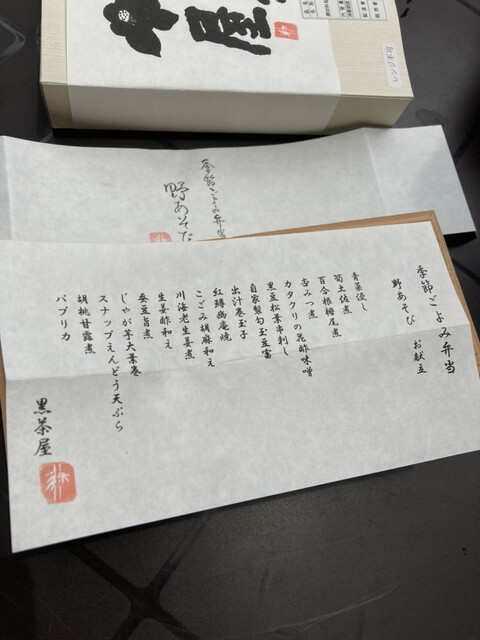 季節ごよみ弁当
野あそび お献立
青菜浸し
筍土佐煮
百合根梅尾煮
杏みつ煮
カタクリの花酢味噌
黒豆松葉串刺し
自家製勾玉豆富
出汁巻玉子
紅鱒幽庵焼
こごみ胡麻和え
川海老生姜煮
生姜酢和え
蚕豆旨煮
じゃが芋大葉巻
スナップえんどう天ぷら
胡桃甘露煮
パプリカ
黒茶屋
季節ごよみ弁当
野あそび
屋
レンジ不可